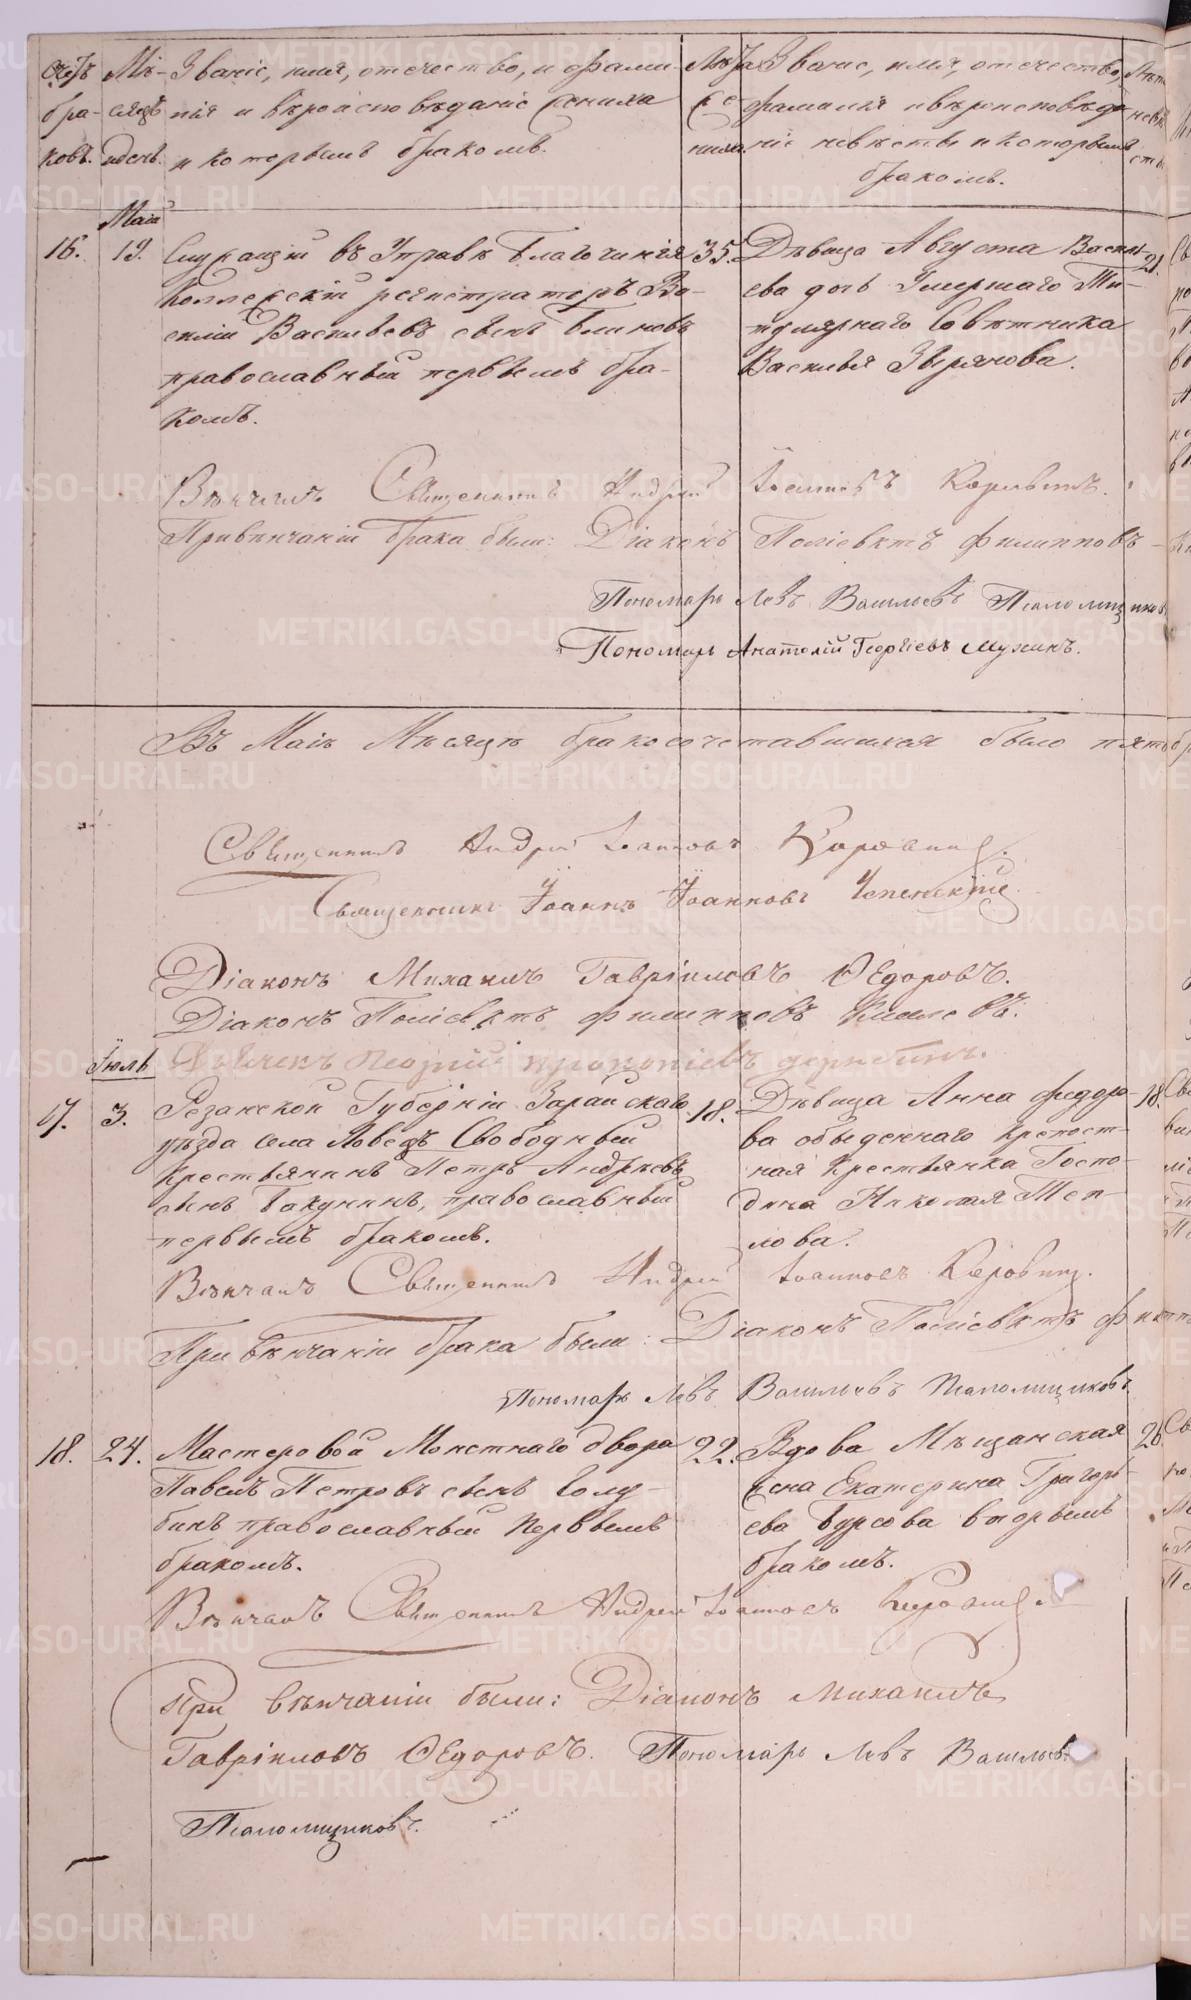 Счетъ бра- ковъ.
Мѣ- сяцъ и день.
Званіе, имя, отечество, и фами-
лія и вѣроисповѣданіе жениха
и которымъ бракомъ.
Лѣта же- ниха.
Званіе, имя, отечество,
фамилія и вѣроисповѣда-
ніе невѣсты и которымъ
бракомъ.
Лѣта невѣ- сты
Маій
16. 19. Служащій въ Управѣ Благочинія 35.
Коллежскій регистраторъ Ва-
силій Васильевъ сынъ Блиновъ
православный первымъ бра-
комъ.
Дѣвица Августа Василь- 21.
ева дочь Умершаго Ти-
тулярнаго Совѣтника
Василья Звѣрянова.
Вѣнчалъ Священникъ Андрей Іоанновъ Коровинъ.
При вѣнчаніи брака были: Діаконъ Поліевктъ Филипповъ
Пономарь Левъ Васильевъ Псаломщиковъ
Пономарь Анатолій Георгіевъ Мухинъ.
Въ Маіѣ Мѣсяцѣ бракосочетавшихся было пять бр
Священникъ Андрей Іоанновъ Коровинъ.
Священникъ Іоаннъ Іоанновъ Успенскій
Діаконъ Михаилъ Гавріиловъ Ѳедоровъ.
Діаконъ Поліевктъ Филипповъ
Дьячекъ Георгій Прокопіевъ Дерябинъ.
Іюль
17. 3. Резанской Губерніи Зарайскаго 18.
уѣзда села Ловецъ Свободный
Крестьянинъ Петръ Андреевъ
сынъ Бакунинъ, православный
первымъ бракомъ.
Дѣвица Анна Федоро- 18.
ва обыденнаго крепост-
ная Крестьянка Госпо-
дина Николая Теп-
лова.
Вѣнчалъ Священникъ Андрей Іоанновъ Коровинъ.
При вѣнчаніи брака были: Діаконъ Поліевктъ Филипп
Пономарь Левъ Васильевъ Псаломщиковъ
18. 24. Мастеровой Монетнаго двора 22.
Павелъ Петровъ сынъ Голу-
бинъ православный первымъ
бракомъ.
Вдова Мѣщанская 26.
жена Екатерина Григорь-
ева Бурсова вторымъ
бракомъ.
Вѣнчалъ Священникъ Андрей Іоанновъ Коровинъ
При вѣнчаніи были: Діаконъ Михаилъ
Гавріиловъ Ѳедоровъ. Пономарь Левъ Васильевъ
Псаломщиковъ.
METRIKI.GASO-URAL.RU